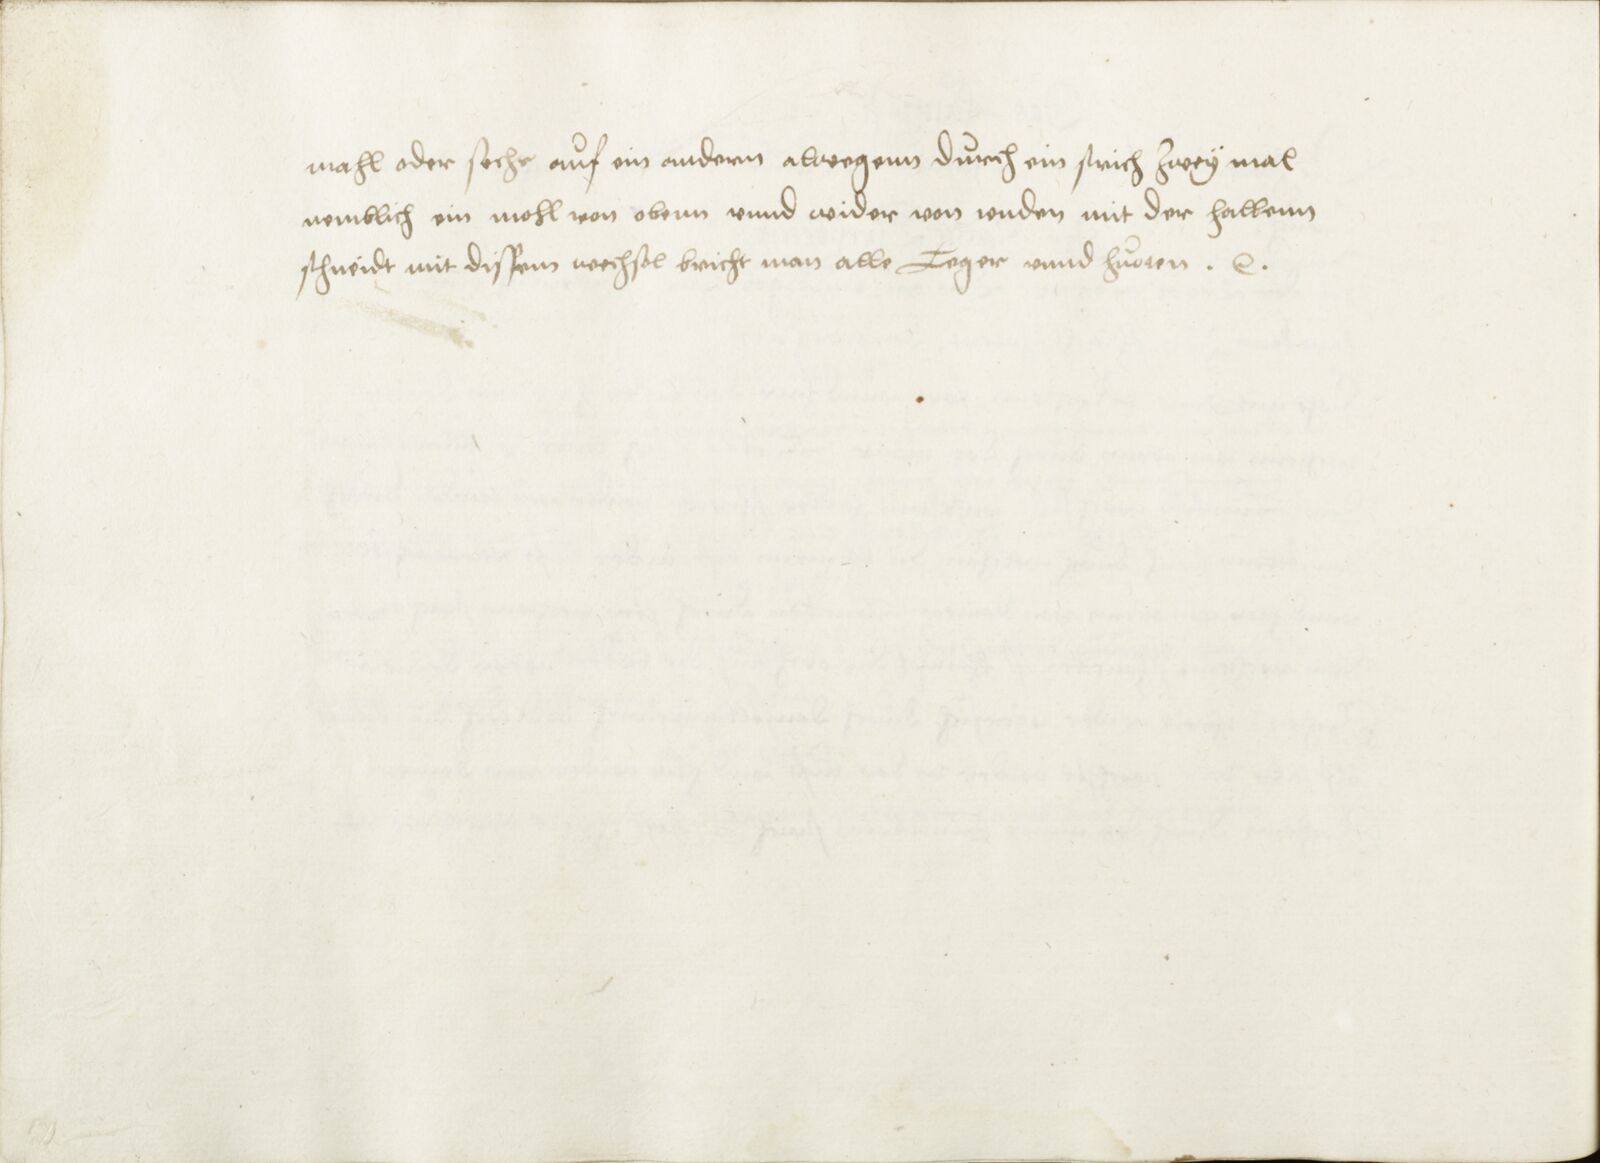 mahl oder sechs auf ein andern alwegenn durch ein strich zwey mal
nemblich ein mohl von obenn vnnd wider von vnden mit der hallenn
schneidt mit dissem wechsel bricht man alle Leger vnnd huoten . E .